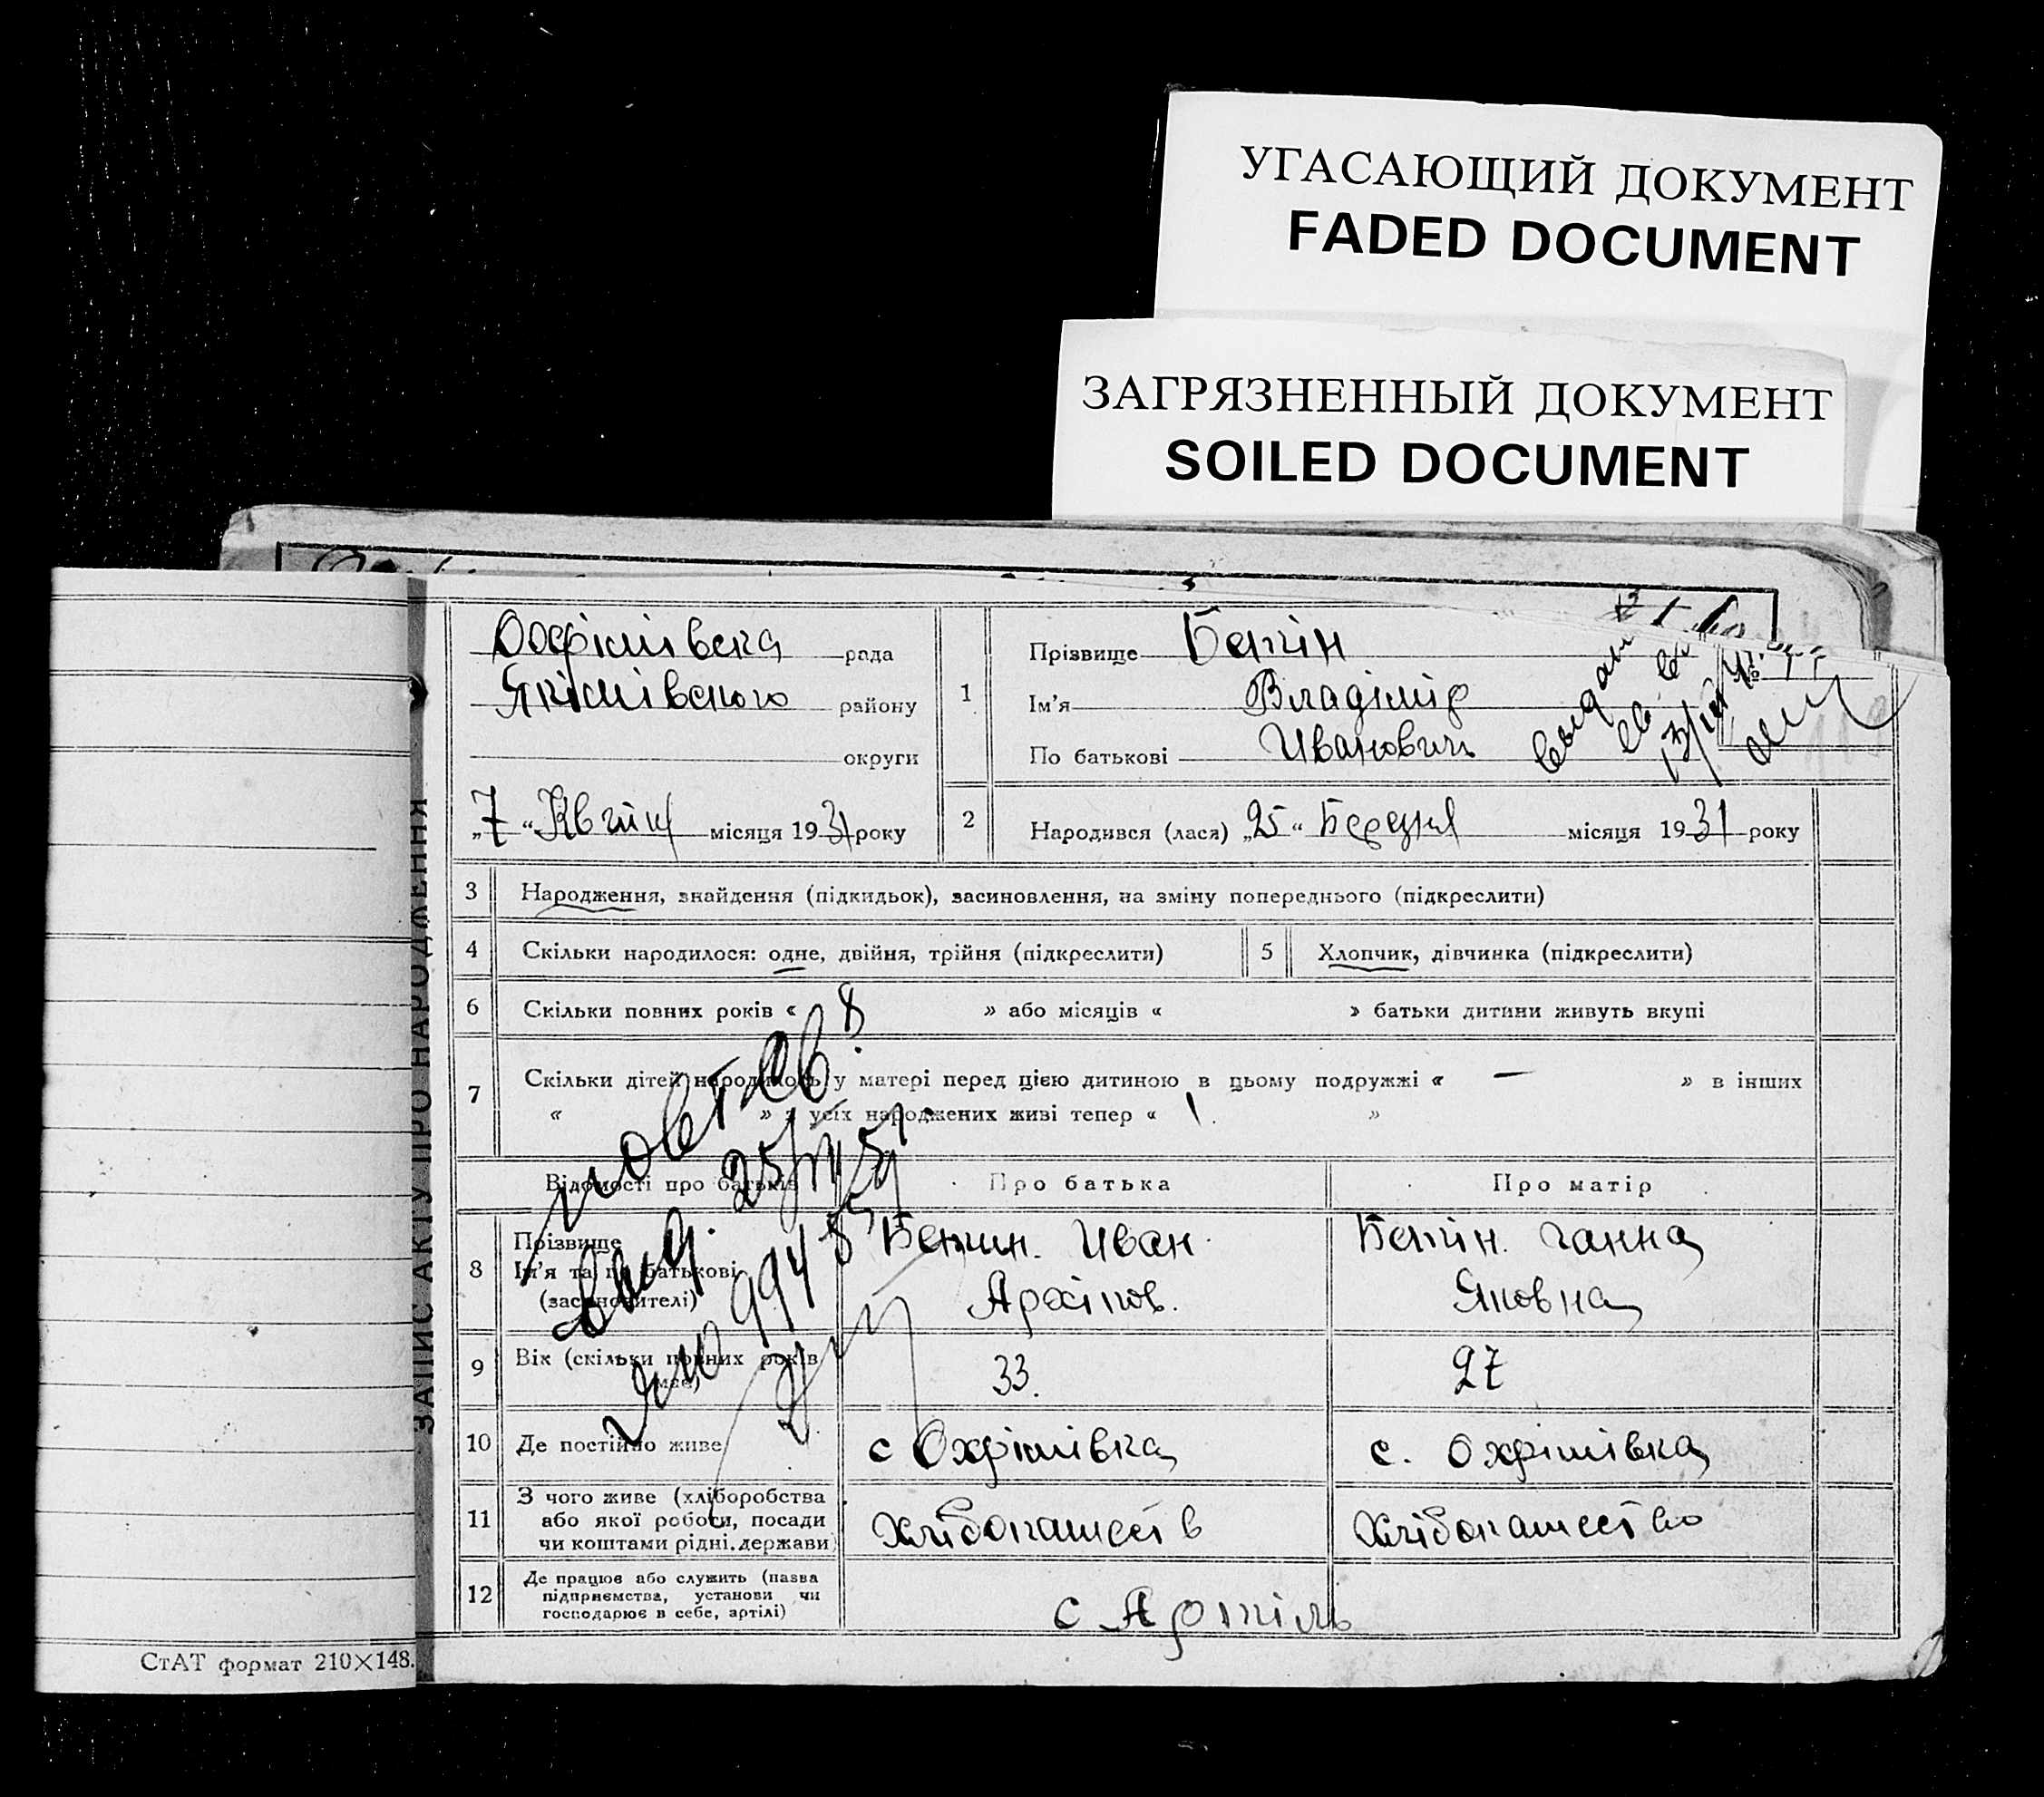 УГАСАЮЩИЙ ДОКУМЕНТ
FADED DOCUMENT
ЗАГРЯЗНЕННЫЙ ДОКУМЕНТ
SOILED DOCUMENT
ЗАПИС АКТУ ПРО НАРОДЖЕННЯ
Охрімівска рада
Якімівского району
округи
„7“ Квітн місяця 1931 року
1
Прізвище
Ім'я Владімір
По батькові Иванович
№
13/III
2 Народився (лася) „25“ Березня місяця 1931 року
3 Народження, знайдення (підкидьок), засиновлення, на зміну попереднього (підкреслити)
4 Скільки народилося: одне, двійня, трійня (підкреслити) 5 Хлопчик, дівчинка (підкреслити)
6 Скільки повних років « 8 » або місяців « » батьки дитини живуть вкупі
7 Скільки дітей народилось у матері перед цією дитиною в цьому подружжі « — » в інших
« » з усіх народжених живі тепер « 1 »
Відомості про батьків Про батька Про матір
8 Прізвище
Ім'я та по батькові
(засиновителі)
Иван
Архіпов.
Ганна
Яковна
9 Вік (скільки повних років має) 33. 27
10 Де постійно живе с Охрімівка с. Охрімівка
11 З чого живе (хліборобства
або якої роботи, посади
чи коштами рідні, держави)
Хлібопашест в Хлібопашество
12 Де працює або служить (назва
підприємства, установи чи
господарює в себе, артілі)
с Артіль
повт. св.
СтАТ формат 210×148.